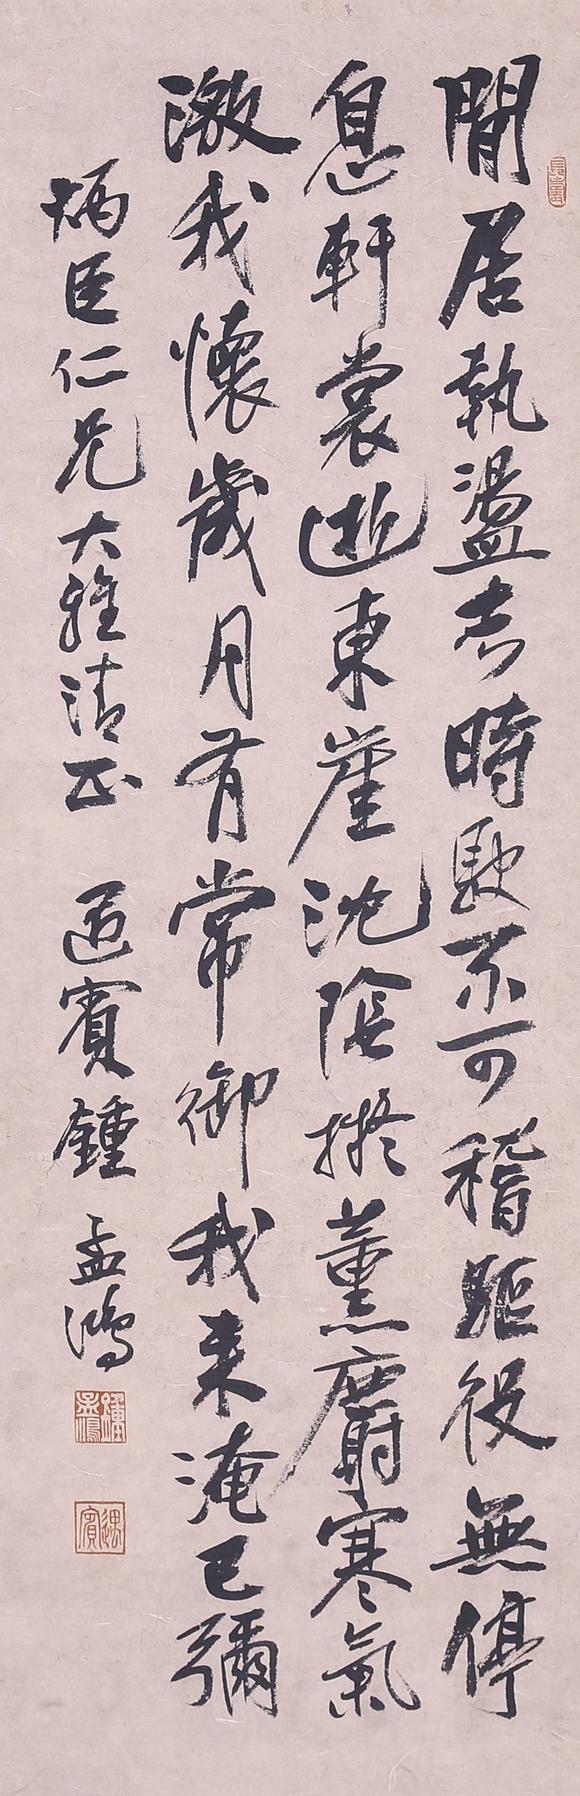 閒居執盪志時駛不可稽驅役無停
息軒裳逝東崖沈陰擬薰麝寒氣
激我懷歲月有常御我來淹已彌
炳臣仁兄大雅清正 遇賓鍾孟鴻
鍾孟鴻
遇賓